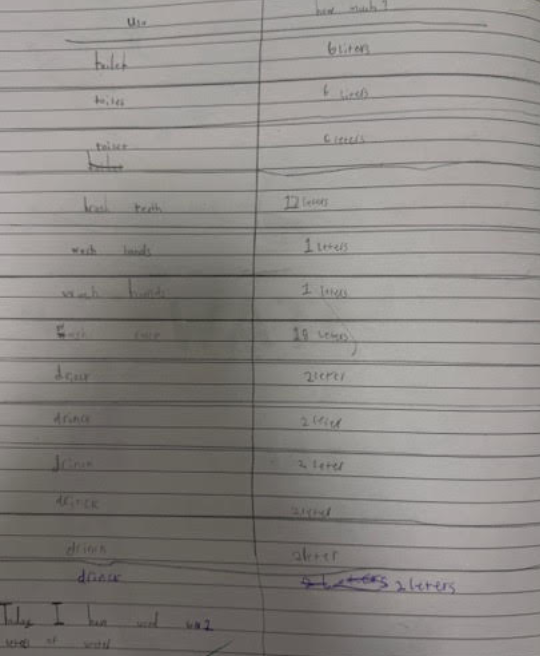 use how much?
toilet 6 liters
toilet 6 liters
toilet 6 leters
brush teeth 12 leters
wash hands 1 leters
wash hands 1 leters
18 leters
drinck 2 leter
drinck 2 leter
drinck 2 leter
drinck 2 leter
drinck 2 leter
drinck 2 leters
Today I have used
leters of water